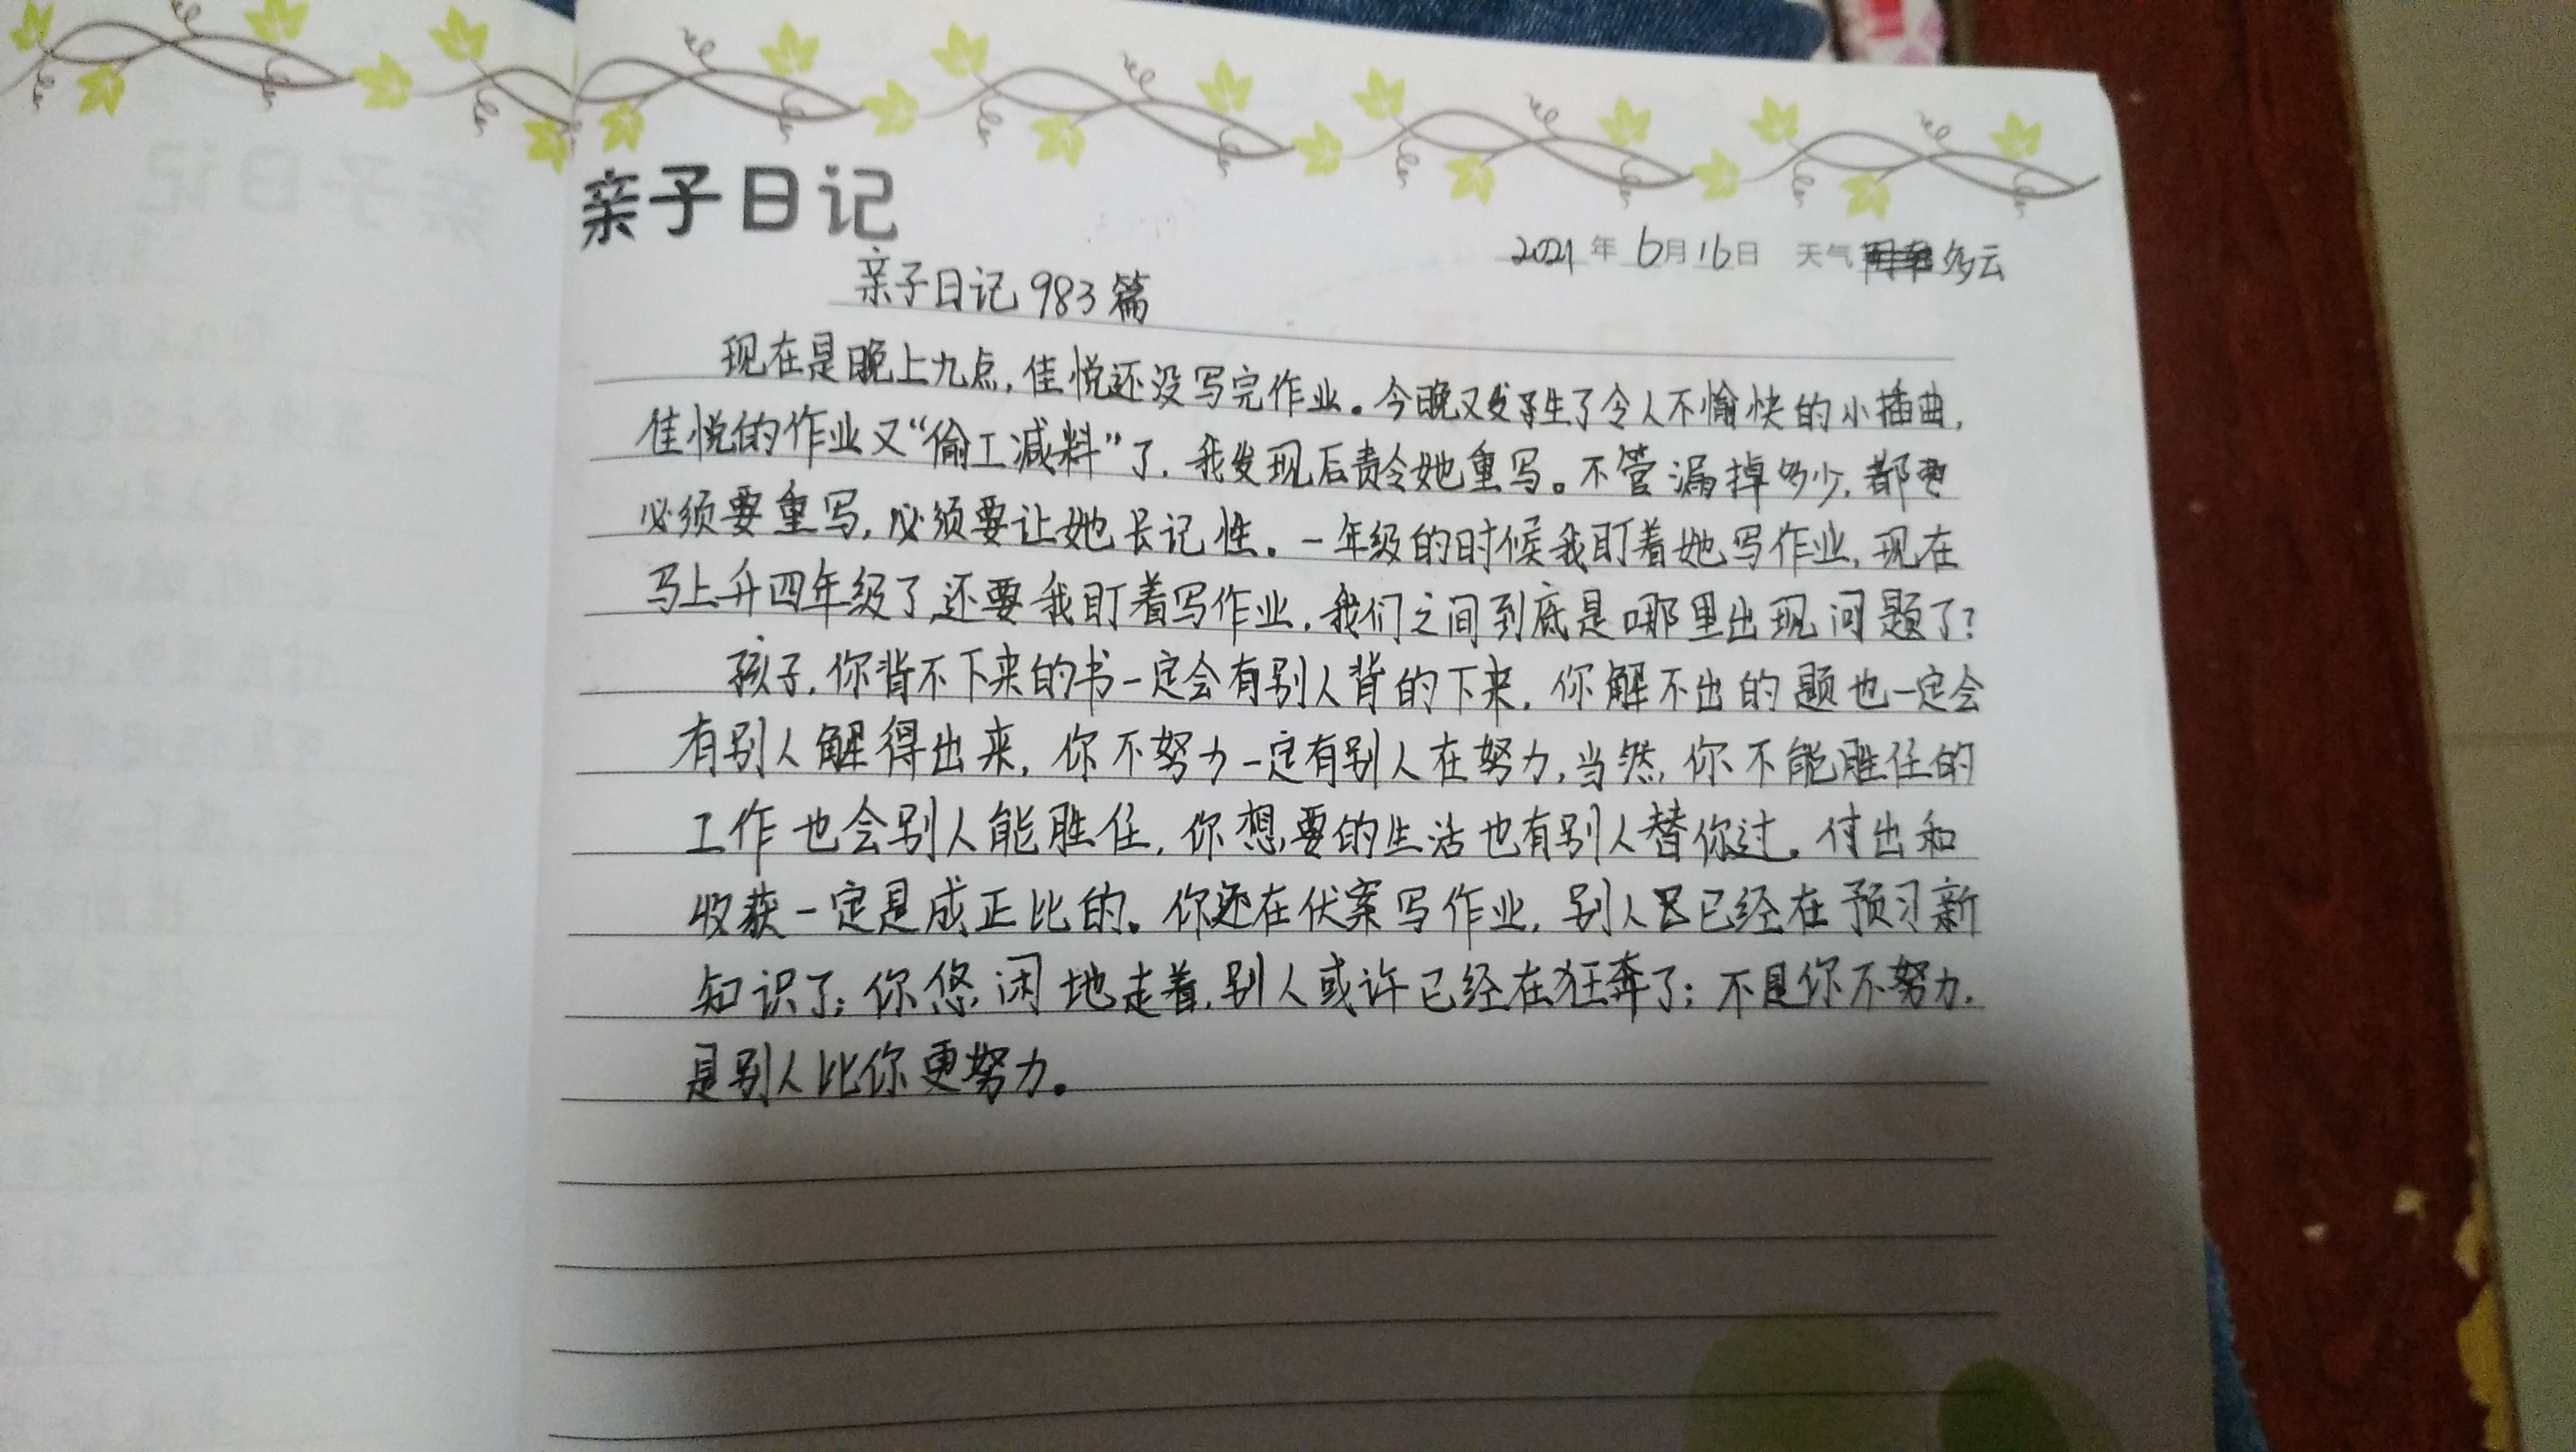 亲子日记
2021年6月16日 天气 多云
亲子日记983篇
现在是晚上九点,佳悦还没写完作业。今晚又发生了令人不愉快的小插曲,
佳悦的作业又“偷工减料”了,我发现后责令她重写。不管漏掉多少,都
必须要重写,必须要让她长记性。一年级的时候我盯着她写作业,现在
马上升四年级了,还要我盯着写作业,我们之间到底是哪里出现问题了?
孩子,你背不下来的书一定会有别人背的下来,你解不出的题也一定会
有别人解得出来,你不努力一定有别人在努力,当然,你不能胜任的
工作也会别人能胜任,你想要的生活也有别人替你过。付出和
收获一定是成正比的。你还在伏案写作业,别人已经在预习新
知识了;你悠闲地走着,别人或许已经在狂奔了;不是你不努力,
是别人比你更努力。